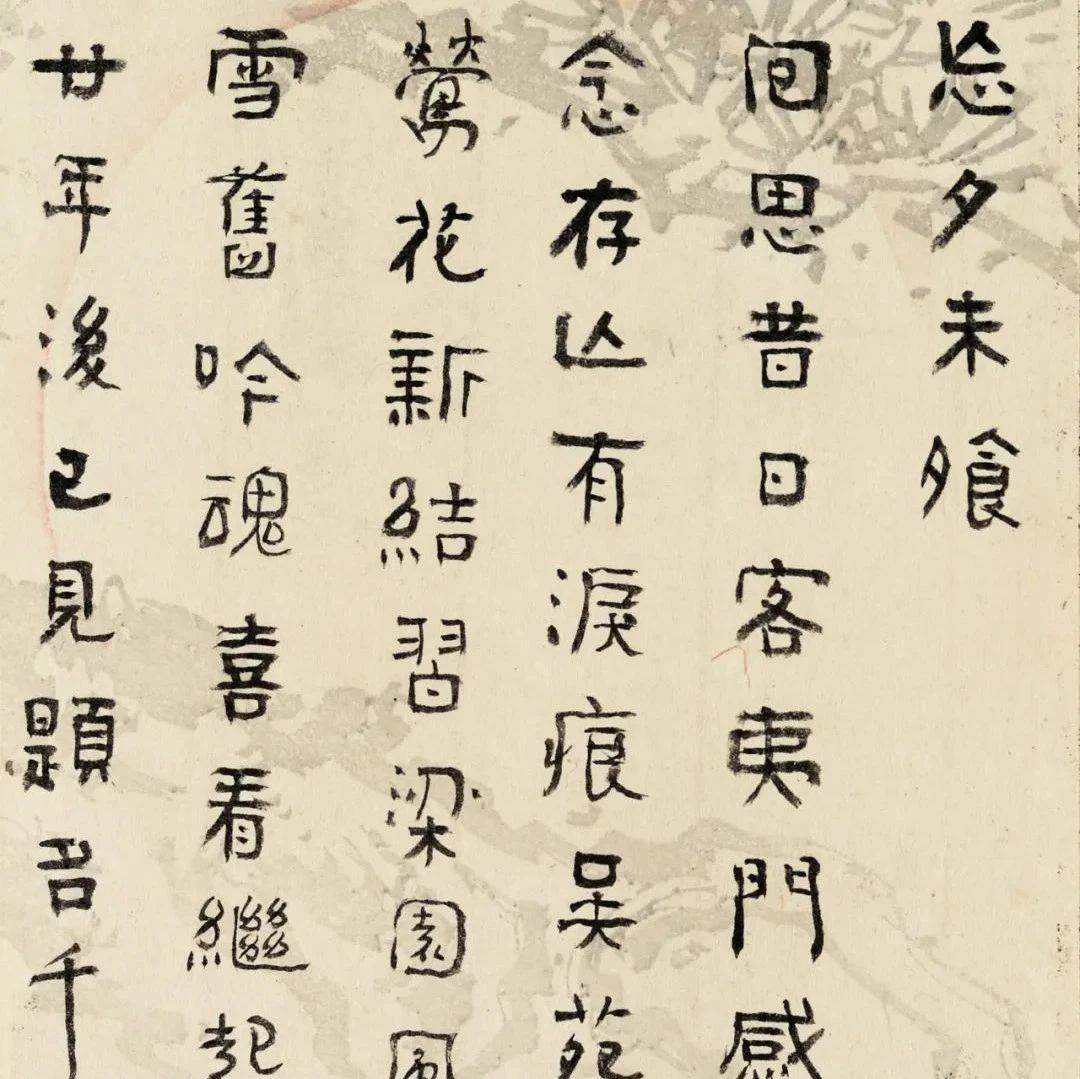 忘夕未飧
回思昔日客夷門感
念存亾有淚痕吳苑
鶯花新結習梁園風
雪舊吟魂喜看繼起
廿年後已見題名千